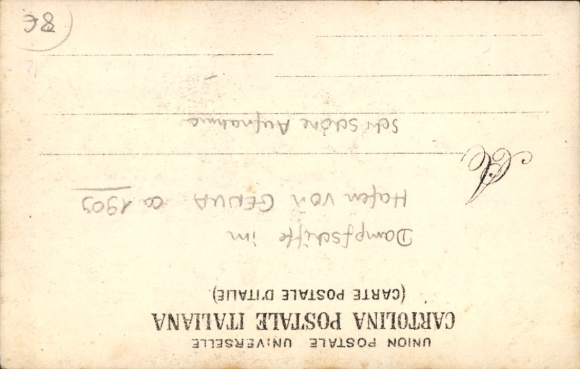 UNION POSTALE UNIVERSELLE
CARTOLINA POSTALE ITALIANA
(CARTE POSTALE D'ITALIE).
Dampfschiffe im
Hafen von GENUA ca 1903
A
sehr schöne Aufnahme
8€